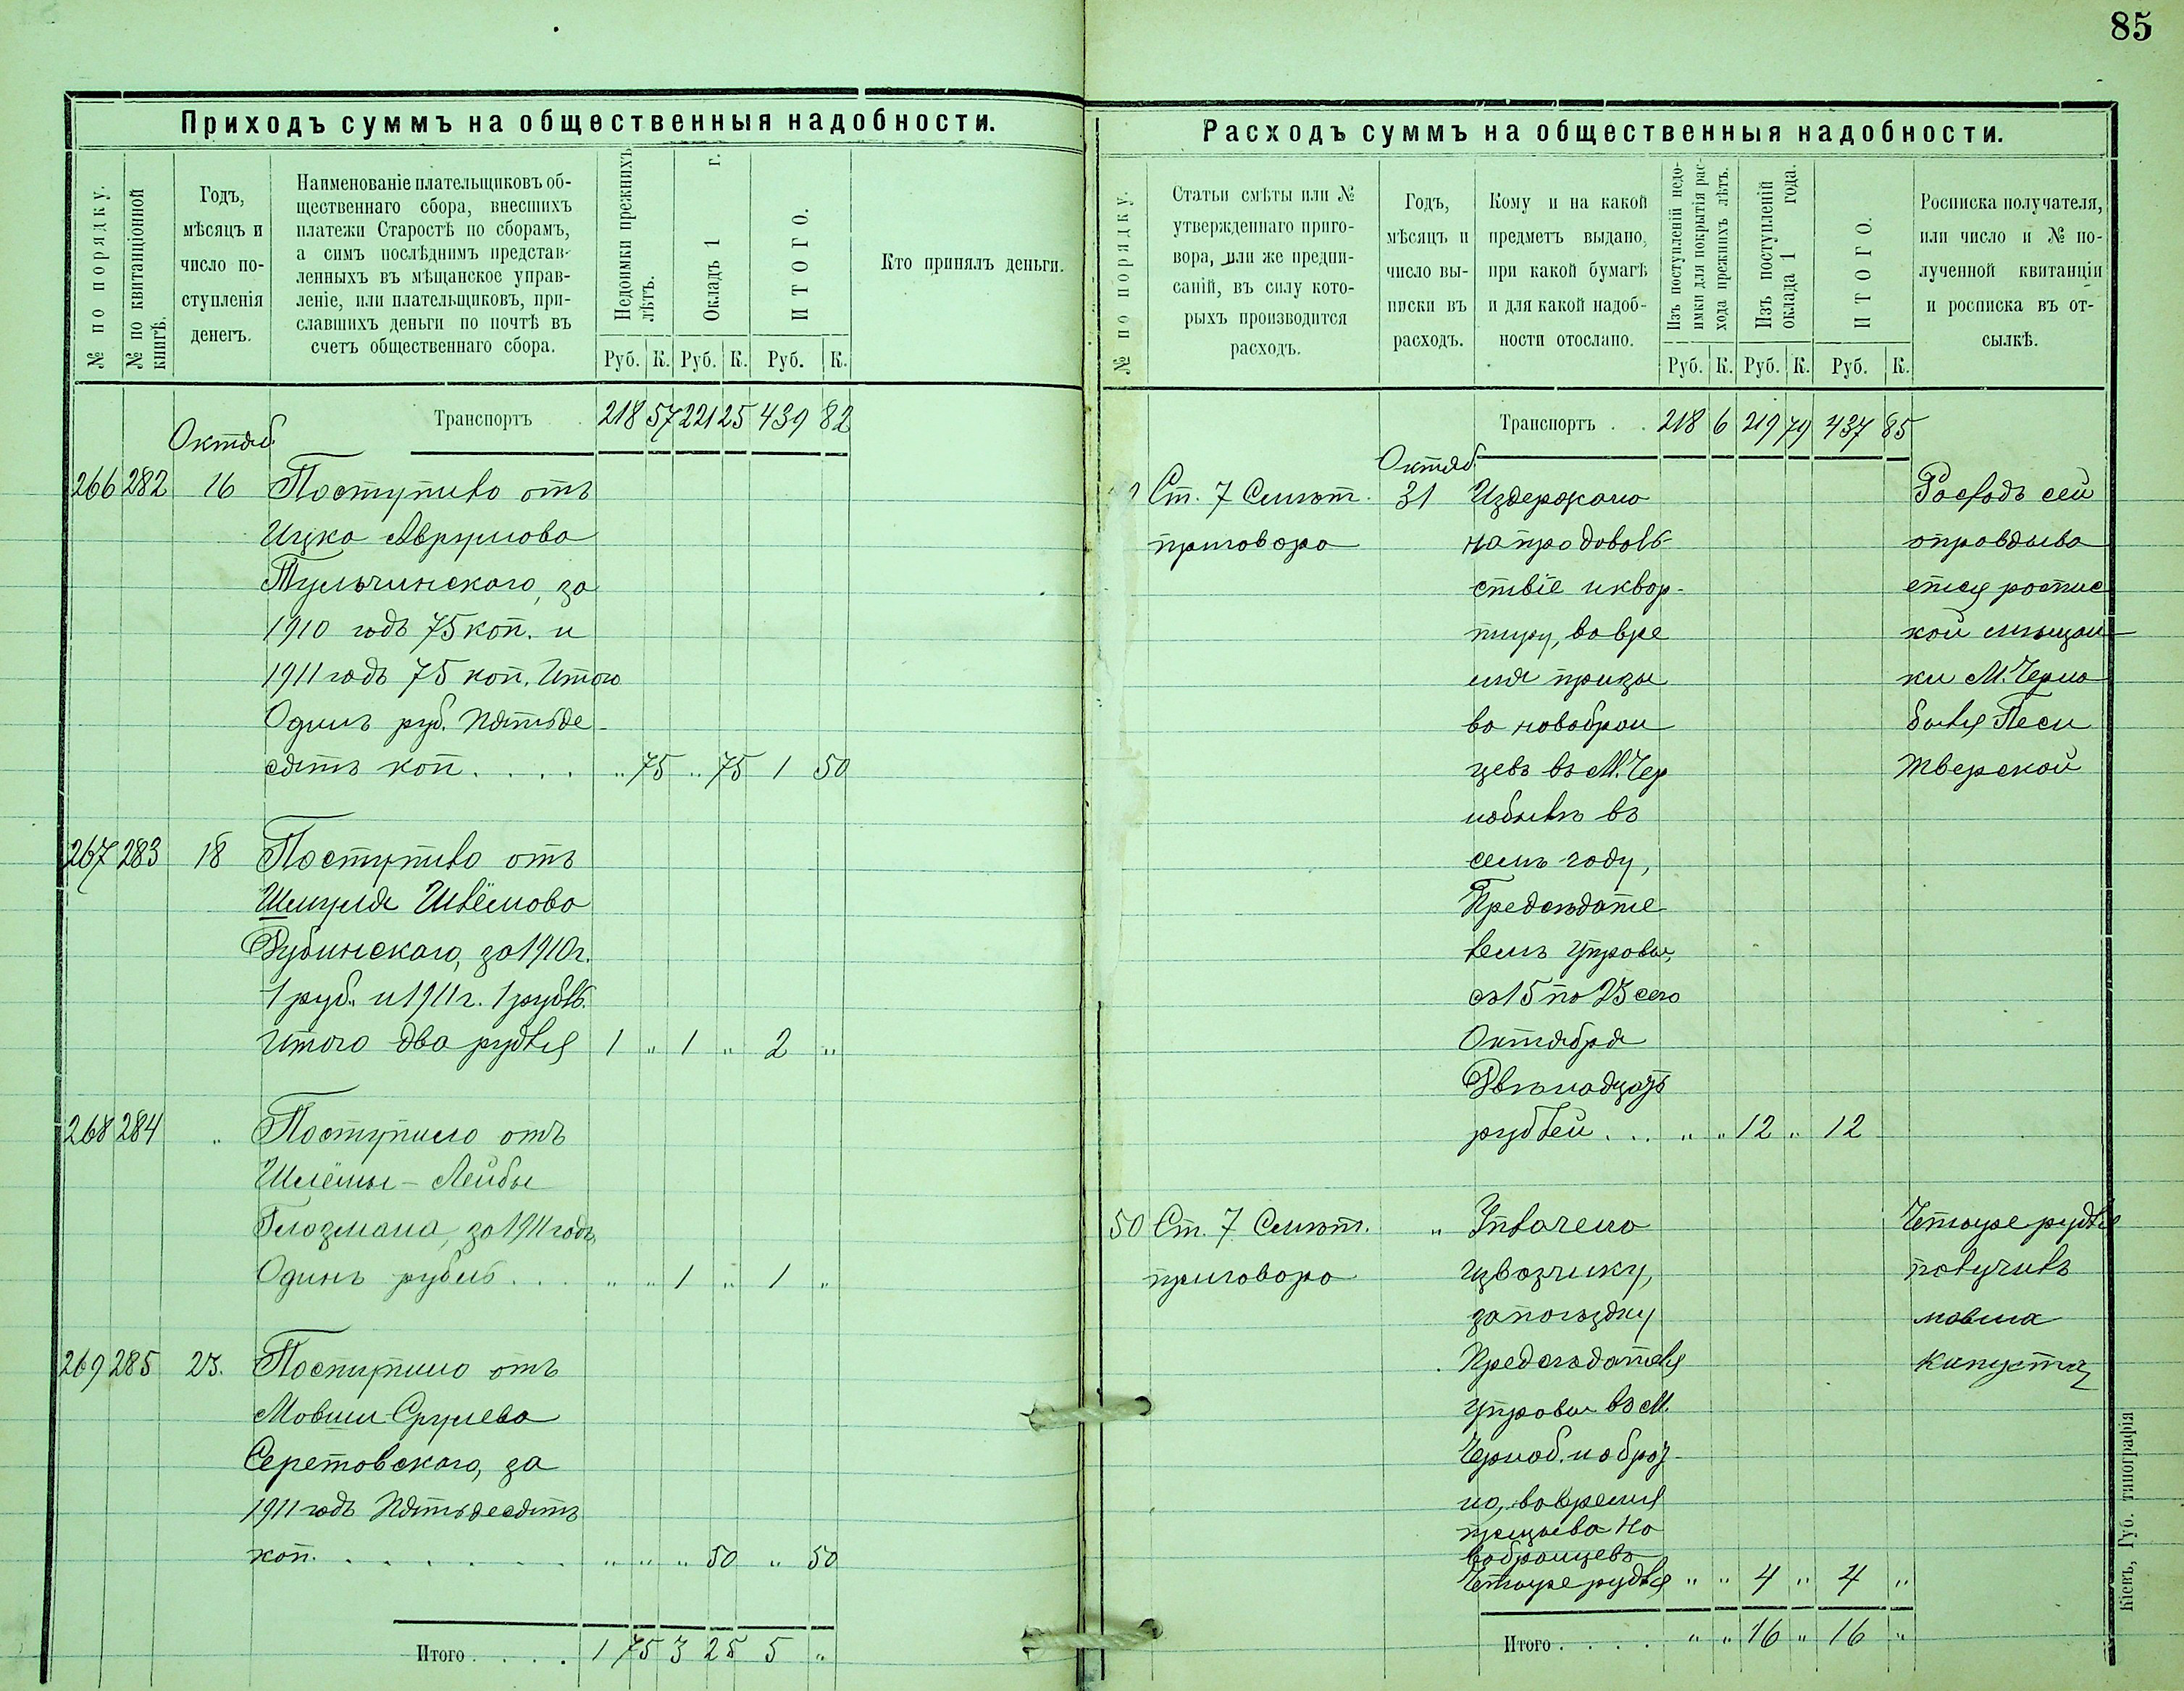 85
Приходъ суммъ на общественныя надобности.
№ по порядку.
№ по квитанціонной книгѣ.
Годъ,
мѣсяцъ и
число по-
ступленія
денегъ.
Наименованіе плательщиковъ об-
щественнаго сбора, внесшихъ
платежи Старостѣ по сборамъ,
а симъ послѣднимъ представ-
ленныхъ въ мѣщанское управ-
леніе, или плательщиковъ, при-
славшихъ деньги по почтѣ въ
счетъ общественнаго сбора.
Недоимки прежнихъ
лѣтъ.
Окладъ 1 г.
ИТОГО.
Руб. К. Руб. К. Руб. К.
Кто принялъ деньги.
Транспортъ 218 57 221 25 439 82
Октяб.
266 282 16 Поступило отъ
Ицка Аврумова
Тульчинскаго, за
1910 годъ 75 коп. и
1911 годъ 75 коп. Итого
Одинъ руб. Пятьде-
сятъ коп. . . . . „ 75 „ 75 1 50
267 283 18 Поступило отъ
Шмуля Шлёмова
Дубинскаго, за 1910 г.
1 руб. и 1911 г. 1 рубль.
Итого два рубля 1 „ 1 „ 2 „
268 284 „ Поступило отъ
Шлёмы-Лейбы
Глазмана, за 1911 годъ
Одинъ рубль . . . „ „ 1 „ 1 „
269 285 25. Поступило отъ
Мовши Срулева
Серетовскаго, за
1911 годъ Пятьдесятъ
коп. . . . . . . „ „ „ 50 „ 50
Итого . . . . 1 75 3 25 5 „
Расходъ суммъ на общественныя надобности.
№ по порядку.
Статьи смѣты или №
утвержденнаго приго-
вора, или же предпи-
саній, въ силу кото-
рыхъ производится
расходъ.
Годъ,
мѣсяцъ и
число вы-
писки въ
расходъ.
Кому и на какой
предметъ выдано,
при какой бумагѣ
и для какой надоб-
ности отослано.
Изъ поступленій недо-
имки для покрытія рас-
хода прежнихъ лѣтъ.
Изъ поступленій
оклада 1 года.
ИТОГО.
Руб. К. Руб. К. Руб. К.
Росписка получателя,
или число и № по-
лученной квитанціи
и росписка въ от-
сылкѣ.
Транспортъ . . 218 6 219 79 437 85
Октяб.
Ст. 7 Смѣт. 31 Издержано Расходъ сей
приговора на продоволь- оправдыва
ствіе и квар- ется роспис
тиру, во вре кой мѣщан-
мя призы ки М. Черно
ва новобран быля Песи
цевъ въ М. Чер Тверской
нобылѣ въ
семъ году,
Предсѣдате
лемъ Управы,
съ 15 по 25 сего
Октября
Двѣнадцать
рублей . . . „ „ 12 „ 12
50 Ст. 7 Смѣт. „ Уплачено Четыре рубля
приговора извозчику, получилъ
за поѣздку мовша
Предсѣдателя Капуста
Управы въ М.
Черноб. и обрат-
но, во время
призыва но
вобранцевъ
Четыре рубля „ „ 4 „ 4 „
Итого . . . . „ „ 16 „ 16 „
Кіевъ, Губ. типографія